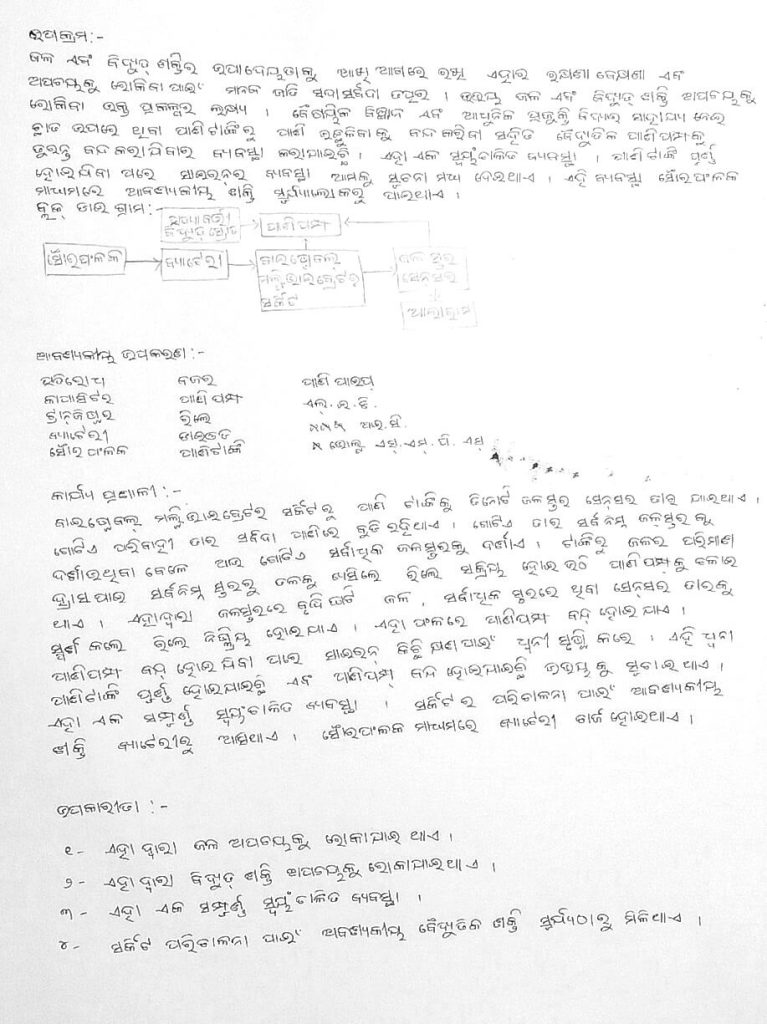 ଉପକ୍ରମ:-
ଜଳ ଏବଂ ବିଦ୍ୟୁତ୍ ଶକ୍ତିର ଉପାଦେୟତାକୁ ଆଖି ଆଗରେ ରଖି ଏହାର ରକ୍ଷଣାବେକ୍ଷଣା ଏବଂ
ଅପଚୟକୁ ରୋକିବା ପାଇଂ ମାନବ ଜାତି ସଦାସର୍ବଦା ତତ୍ପର । ଉଭୟ ଜଳ ଏବଂ ବିଦ୍ୟୁତ୍ ଶକ୍ତି ଅପଚୟକୁ
ରୋକିବା ଉକ୍ତ ପ୍ରକଳ୍ପର ଲକ୍ଷ୍ୟ । ବୈଷୟିକ ବିଜ୍ଞାନ ଏବଂ ଆଧୁନିକ ପ୍ରଯୁକ୍ତି ବିଦ୍ୟାର ସାହାଯ୍ୟ ନେଇ
ଛାତ ଉପରେ ଥିବା ପାଣିଟାଙ୍କିରୁ ପାଣି ଉଛୁଳିବାକୁ ବନ୍ଦ କରିବା ସହିତ ବୈଦ୍ୟୁତିକ ପାଣିପମ୍ପକୁ
ତୁରନ୍ତ ବନ୍ଦ କରାଯିବାର ବ୍ୟବସ୍ଥା କରାଯାଇଛି । ଏହା ଏକ ସ୍ୱୟଂଚାଳିତ ବ୍ୟବସ୍ଥା । ପାଣିଟାଙ୍କି ପୂର୍ଣ୍ଣ
ହୋଇଯିବା ପରେ ସାଇରନ୍‌ର ବ୍ୟବସ୍ଥା ଆମକୁ ସୂଚନା ମଧ୍ୟ ଦେଇଥାଏ । ଏହି ବ୍ୟବସ୍ଥା ସୌରପଂଳକ
ମାଧ୍ୟମରେ ଆବଶ୍ୟକୀୟ ଶକ୍ତି ସୂର୍ଯ୍ୟାଲୋକରୁ ପାଇଥାଏ ।
ବ୍ଲକ୍ ଡାଇଗ୍ରାମ:-
ବିଦ୍ୟୁତ୍ ସ୍ରୋତ
ପାଣିପମ୍ପ
ସୌରପଂଳକ
ବ୍ୟାଟେରୀ
ବାଇଷ୍ଟେବଲ୍
ମଲ୍ଟିଭାଇବ୍ରେଟର୍
ସର୍କିଟ
ଜଳସ୍ତର
ସେନ୍‌ସର
ଆଲାରାମ
ଆବଶ୍ୟକୀୟ ଉପକରଣ:-
ପ୍ରତିରୋଧ ବଜର ପାଣି ପାଇପ୍
କାପାସିଟର ପାଣିପମ୍ପ ଏଲ୍.ଇ.ଡି.
ଟ୍ରାନ୍‌ଜିଷ୍ଟର ରିଲେ ୫୫୫ ଆଇ.ସି.
ବ୍ୟାଟେରୀ ଡାଇଓଡ ଭୋଲ୍ଟ ଏସ୍.ଏମ୍.ପି.ଏସ୍
ସୌରପଂଳକ ପାଣିଟାଙ୍କି
କାର୍ଯ୍ୟ ପ୍ରଣାଳୀ:-
ବାଇଷ୍ଟେବଲ୍ ମଲ୍ଟିଭାଇବ୍ରେଟର ସର୍କିଟରୁ ପାଣି ଟାଙ୍କିକୁ ତିନୋଟି ଜଳସ୍ତର ସେନ୍‌ସର ତାର ଯାଇଥାଏ ।
ଗୋଟିଏ ପରିବାହୀ ତାର ସର୍ବଦା ପାଣିରେ ବୁଡ଼ି ରହିଥାଏ । ଗୋଟିଏ ତାର ସର୍ବନିମ୍ନ ଜଳସ୍ତରକୁ
ଦର୍ଶାଉଥିବା ବେଳେ ଆଉ ଗୋଟିଏ ସର୍ବାଧିକ ଜଳସ୍ତରକୁ ଦର୍ଶାଏ । ଟାଙ୍କିରୁ ଜଳର ପରିମାଣ
ହ୍ରାସପାଇ ସର୍ବନିମ୍ନ ସ୍ତରରୁ ତଳକୁ ଖସିଲେ ରିଲେ ସକ୍ରିୟ ହୋଇଉଠି ପାଣିପମ୍ପକୁ ଚଳାଇ
ଥାଏ । ଏହାଦ୍ୱାରା ଜଳସ୍ତରରେ ବୃଦ୍ଧି ଘଟି ଜଳ, ସର୍ବାଧିକ ସ୍ତରରେ ଥିବା ସେନ୍‌ସର ତାରକୁ
ସ୍ପର୍ଶ କଲେ ରିଲେ ନିଷ୍କ୍ରିୟ ହୋଇଯାଏ । ଏହା ଫଳରେ ପାଣିପମ୍ପ ବନ୍ଦ ହୋଇଯାଏ ।
ପାଣିପମ୍ପ ବନ୍ଦ ହୋଇଯିବା ପରେ ସାଇରନ୍ କିଛି କ୍ଷଣ ପାଇଂ ଧ୍ୱନୀ ସୃଷ୍ଟି କରେ । ଏହି ଧ୍ୱନୀ
ପାଣିଟାଙ୍କି ପୂର୍ଣ୍ଣ ହୋଇଯାଇଛି ଏବଂ ପାଣିପମ୍ପ୍ ବନ୍ଦ ହୋଇଯାଇଛି ଉଭୟକୁ ସୂଚାଇଥାଏ ।
ଏହା ଏକ ସମ୍ପୂର୍ଣ୍ଣ ସ୍ୱୟଂଚାଳିତ ବ୍ୟବସ୍ଥା । ସର୍କିଟର ପରିଚାଳନା ପାଇଂ ଆବଶ୍ୟକୀୟ
ଶକ୍ତି ବ୍ୟାଟେରୀରୁ ଆସିଥାଏ । ସୌରପଂଳକ ମାଧ୍ୟମରେ ବ୍ୟାଟେରୀ ଚାର୍ଜ ହୋଇଥାଏ ।
ଉପକାରୀତା:-
୧- ଏହା ଦ୍ୱାରା ଜଳ ଅପଚୟକୁ ରୋକାଯାଇ ଥାଏ ।
୨- ଏହା ଦ୍ୱାରା ବିଦ୍ୟୁତ୍ ଶକ୍ତି ଅପଚୟକୁ ରୋକାଯାଇଥାଏ ।
୩- ଏହା ଏକ ସମ୍ପୂର୍ଣ୍ଣ ସ୍ୱୟଂଚାଳିତ ବ୍ୟବସ୍ଥା ।
୪- ସର୍କିଟ ପରିଚାଳନା ପାଇଂ ଆବଶ୍ୟକୀୟ ବୈଦ୍ୟୁତିକ ଶକ୍ତି ସୂର୍ଯ୍ୟଠାରୁ ମିଳିଥାଏ ।